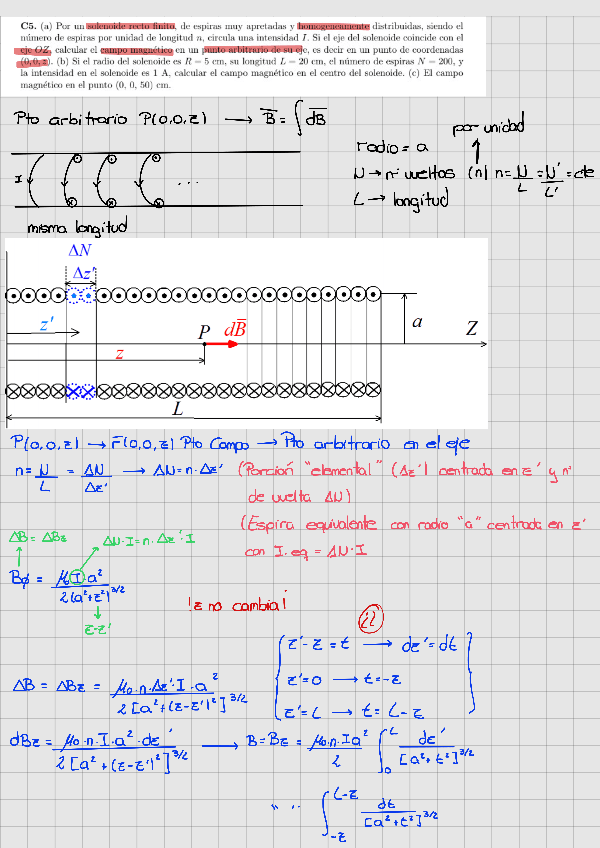 C5. (a) Por un solenoide recto finito, de espiras muy apretadas y homogeneamente distribuidas, siendo el
número de espiras por unidad de longitud n, circula una intensidad I. Si el eje del solenoide coincide con el
eje OZ, calcular el campo magnético en un punto arbitrario de su eje, es decir en un punto de coordenadas
(0, 0, z). (b) Si el radio del solenoide es R = 5 cm, su longitud L = 20 cm, el número de espiras N = 200, y
la intensidad en el solenoide es 1 A, calcular el campo magnético en el centro del solenoide. (c) El campo
magnético en el punto (0, 0, 50) cm.
Pto arbitrario P(0,0,z) → B = ∫ dB
por unidad
radio = a
N → nº vueltas (n) n = N/L = N'/L' = cte
L → longitud
I
...
misma longitud
ΔN
Δz'
z'
z
P
dB
a
Z
L
P(0,0,z) → r(0,0,z) Pto Campo → Pto arbitrario en el eje
n = N/L = ΔN/Δz' → ΔN = n·Δz' (Porción "elemental" (Δz') centrada en z' y nº
de vuelta ΔN)
(Espira equivalente con radio "a" centrada en z'
con I.eq = ΔN·I
ΔB = ΔBz
ΔN·I = n·Δz'·I
Bø = μ₀I·a² / 2(a²+z²)^3/2
z-z'
!z no cambia¡
i2
z'-z = t → dz' = dt
z'=0 → t=-z
z'=L → t= L-z
ΔB = ΔBz = μ₀·n·Δz'·I·a² / 2[a²+(z-z')²]^3/2
dBz = μ₀·n·I·a²·dz' / 2[a²+(z-z')²]^3/2 → B=Bz = μ₀·n·Ia²/2 ∫₀^L dz'/[a²+t²]^3/2
" " ∫_-z^L-z dt/[a²+t²]^3/2